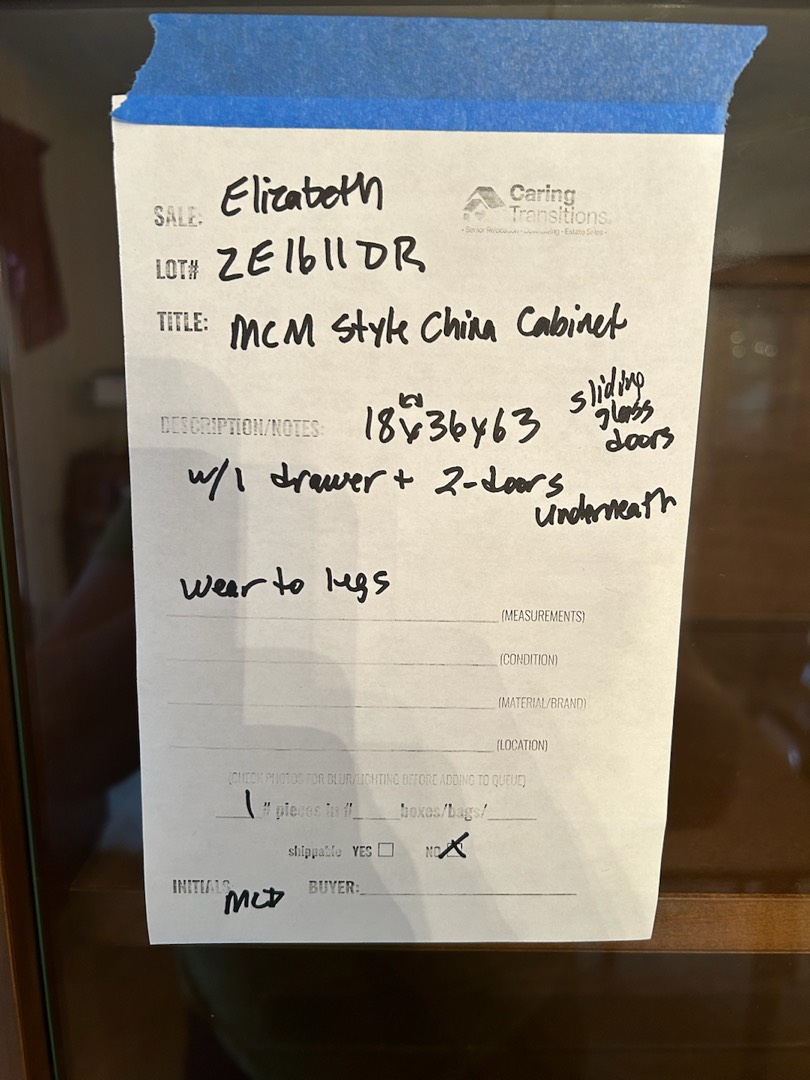 Caring
Transitions.
SALE: Elizabeth
LOT# ZE1611DR
TITLE: MCM Style China Cabinet
DESCRIPTION/NOTES: 18x36x63
sliding
glass
doors
w/1 drawer + 2-doors
underneath
wear to legs
(MEASUREMENTS)
(CONDITION)
(MATERIAL/BRAND)
(LOCATION)
(CHECK PHOTOS FOR BLUR/LIGHTING BEFORE ADDING TO QUEUE)
1 # pieces in # boxes/bags/
shippable YES NO X
INITIALS MCD BUYER: